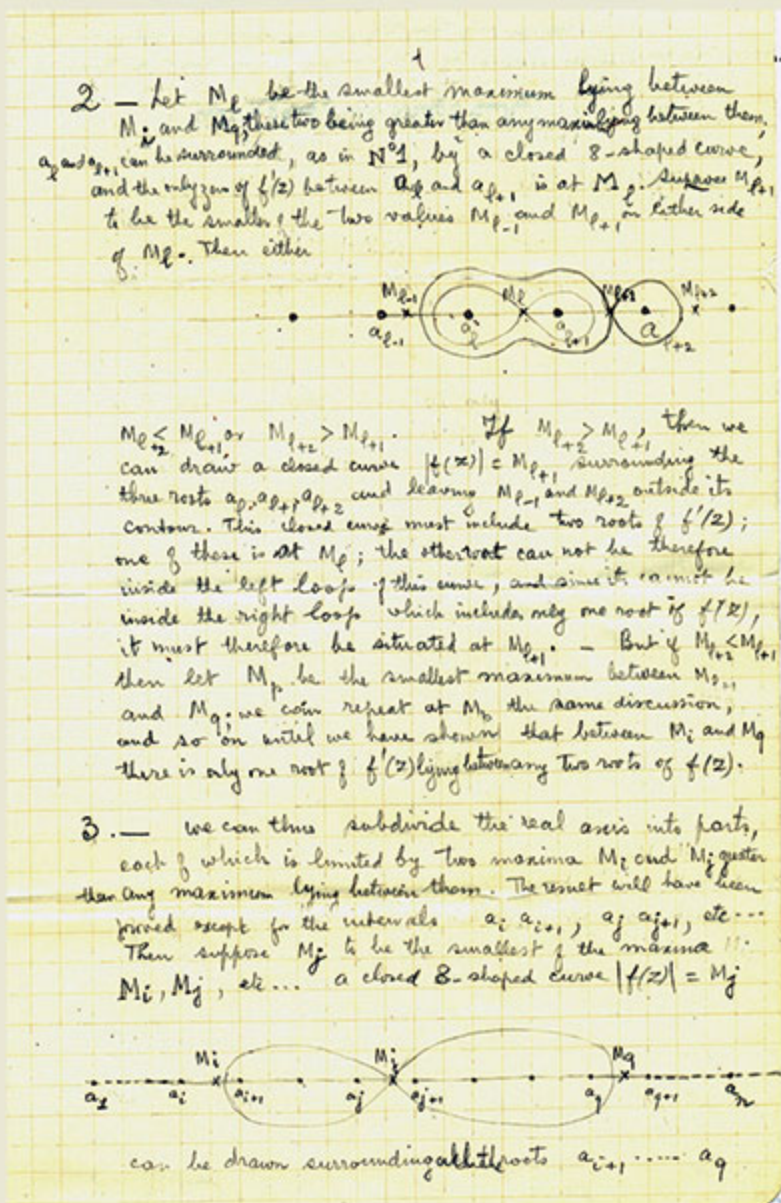 1
2 — Let Mℓ be the smallest maximum lying between
Mi and Mq, these two being greater than any maxi lying between them.
aℓ and aℓ+1 can be surrounded, as in N°1, by a closed 8-shaped curve,
and the only zero of f'(z) between aℓ and aℓ+1 is at Mℓ. Suppose Mℓ+1
to be the smaller of the two values Mℓ-1 and Mℓ+1 on either side
of Mℓ. Then either
Mℓ-1 Mℓ Mℓ+1 Mℓ+2
aℓ-1 aℓ aℓ+1 aℓ+2
Mℓ+2 < Mℓ+1 or Mℓ+2 > Mℓ+1. If Mℓ+2 > Mℓ+1, then we
can draw a closed curve |f(z)| = Mℓ+1 surrounding the
three roots aℓ, aℓ+1, aℓ+2 and leaving Mℓ-1 and Mℓ+2 outside its
contour. This closed curve must include two roots of f'(z);
one of these is at Mℓ; the other root can not be therefore
inside the left loop of this curve, and since it cannot be
inside the right loop which includes only one root of f(z),
it must therefore be situated at Mℓ+1. — But if Mℓ+2 < Mℓ+1
then let Mp be the smallest maximum between
and Mq; we can repeat at Mp the same discussion,
and so on until we have shown that between Mi and Mq
there is only one root of f'(z) lying between any two roots of f(z).
3. — we can thus subdivide the real axis into parts,
each of which is limited by two maxima Mi and Mj greater
than any maximum lying between them. The result will have been
proved except for the intervals ai ai+1, aj aj+1, etc...
Then suppose Mj to be the smallest of the maxima
Mi, Mj, etc... a closed 8-shaped curve |f(z)| = Mj
Mi Mj Mq
a1 ai ai+1 aj aj+1 aq aq+1 an
can be drawn surrounding all the roots ai+1 ..... aq